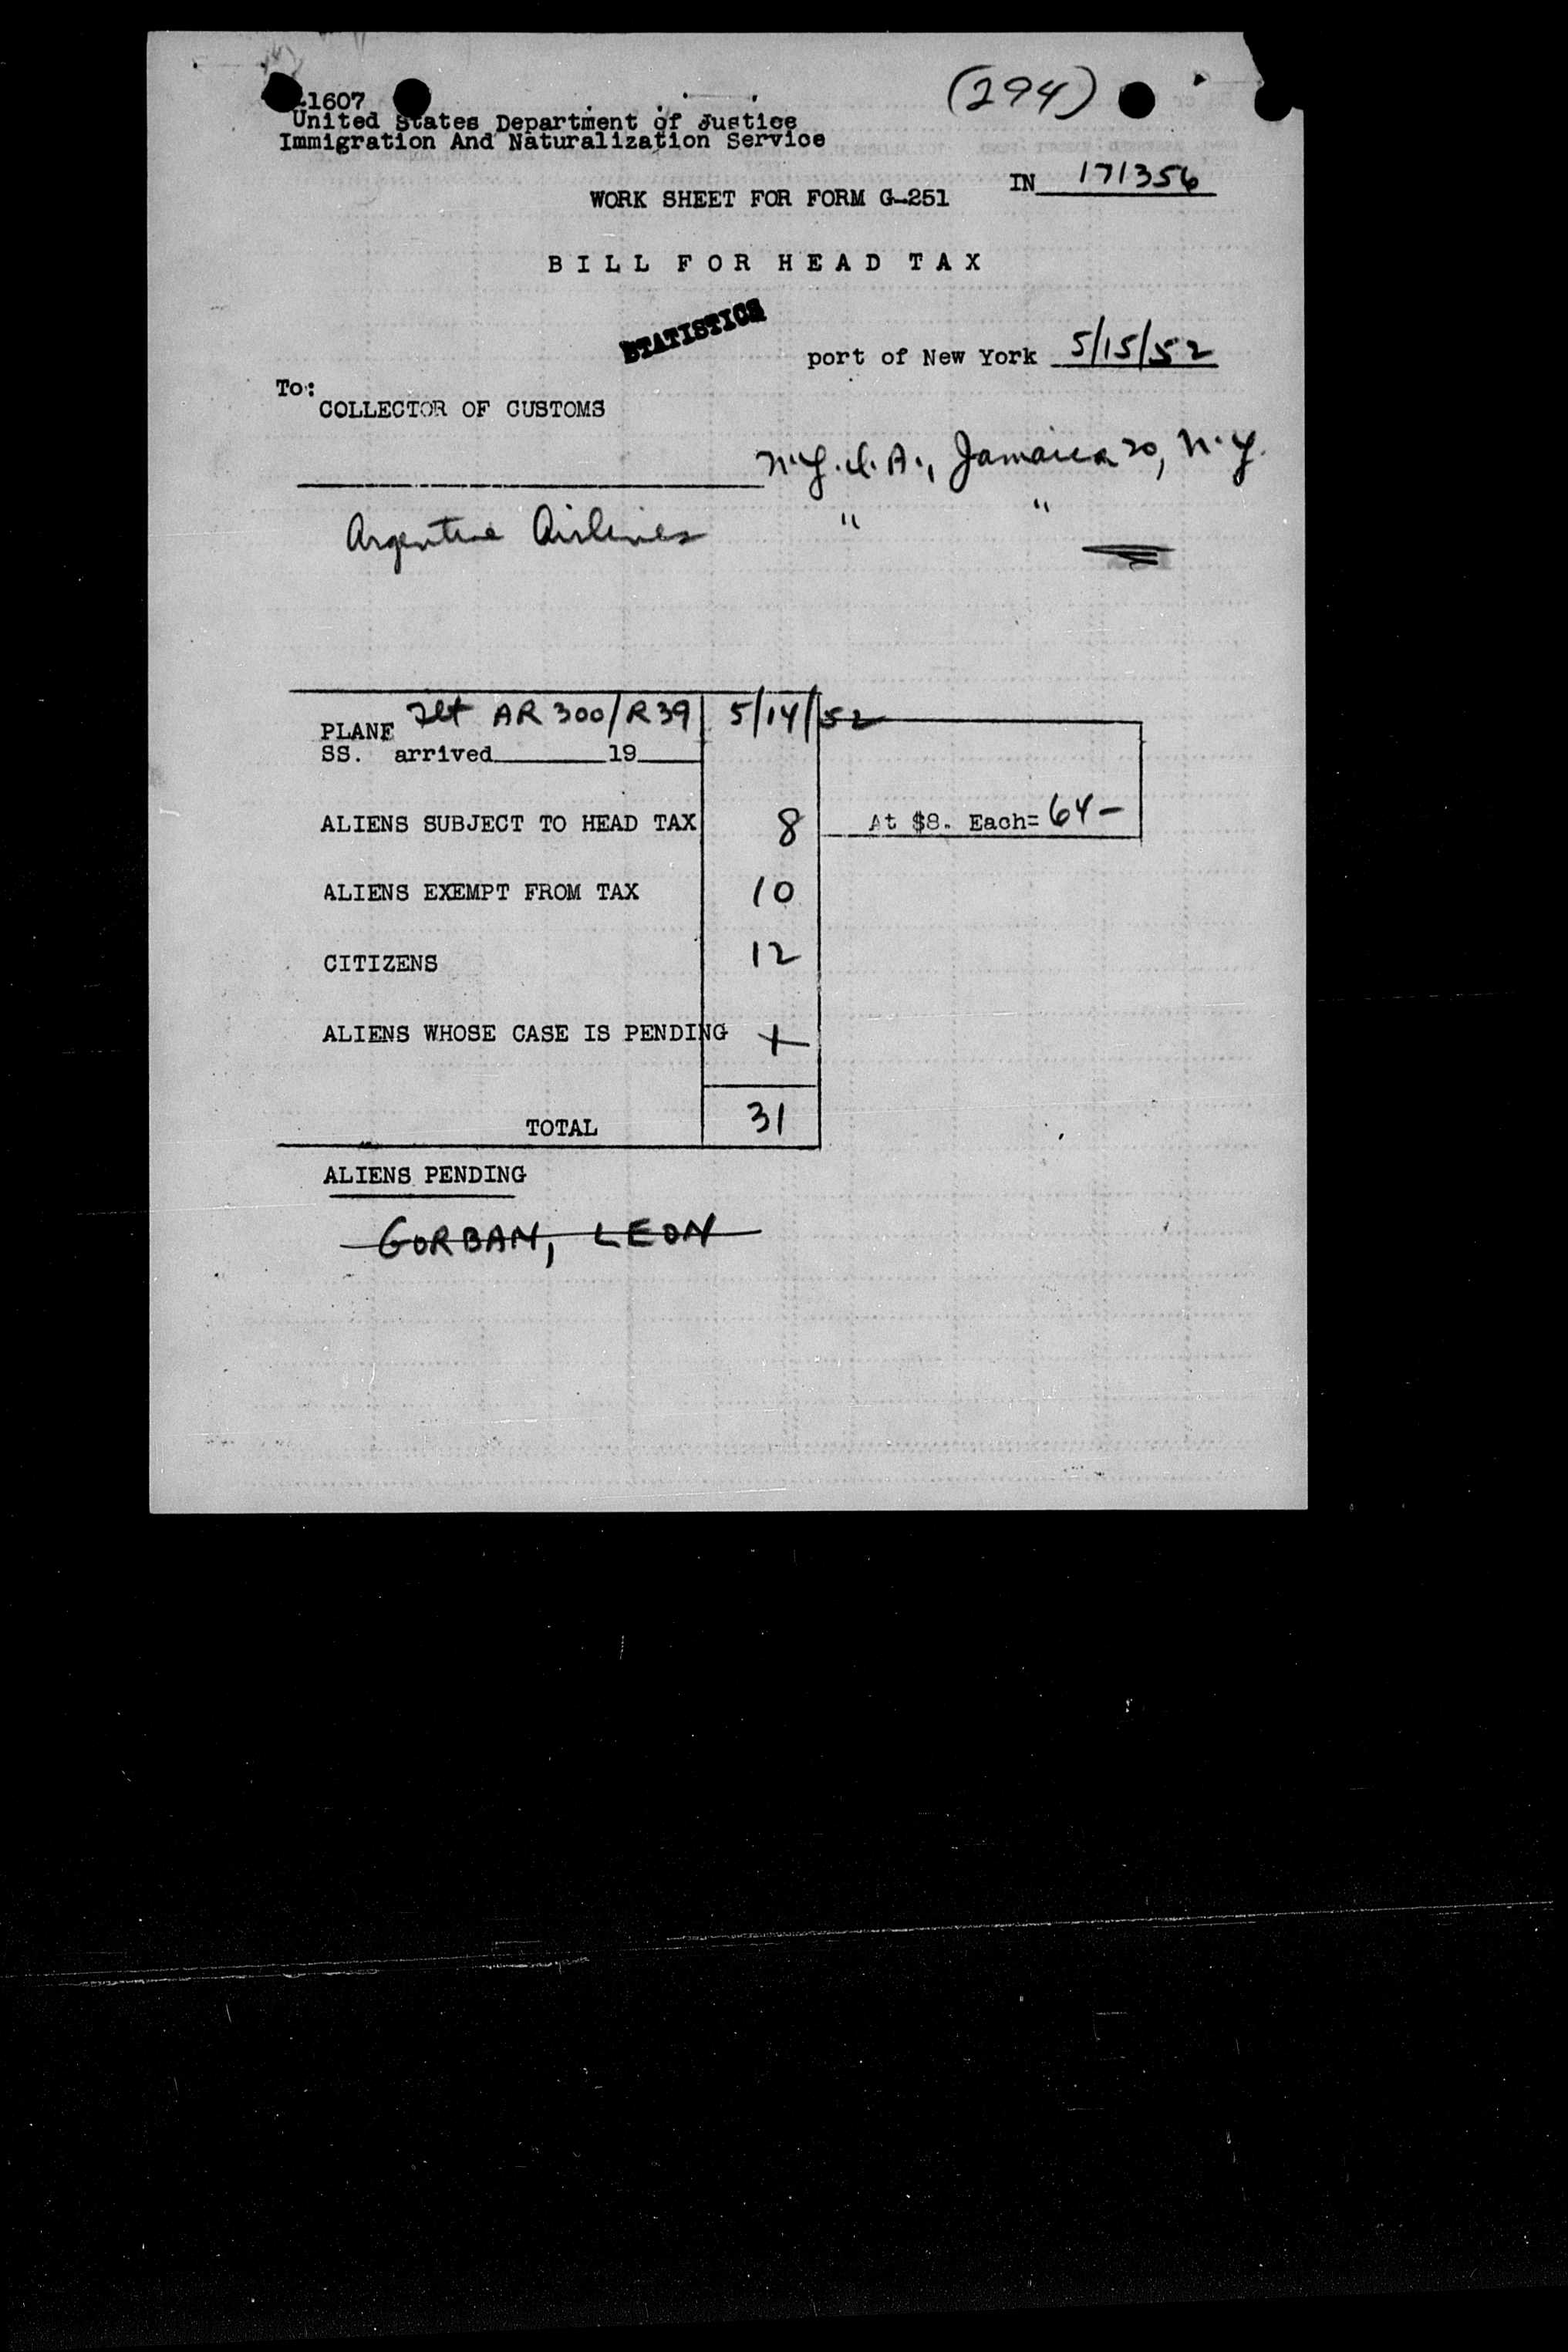 1607
(294)
United States Department of Justice
Immigration And Naturalization Service
IN 171356
WORK SHEET FOR FORM G-251
BILL FOR HEAD TAX
STATISTICS
port of New York 5/15/52
To:
COLLECTOR OF CUSTOMS
N.Y.I.A., Jamaica 20, N.Y.
Argentine Airlines " "
PLANE Flt AR 300/R39 5/14/52
SS. arrived 19
ALIENS SUBJECT TO HEAD TAX 8 At $8. Each= 64-
ALIENS EXEMPT FROM TAX 10
CITIZENS 12
ALIENS WHOSE CASE IS PENDING
TOTAL 31
ALIENS PENDING
GORBAN, LEON